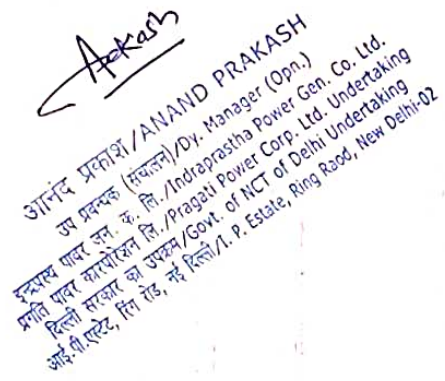 Aakash
आनंद प्रकाश/ANAND PRAKASH
उप प्रबन्धक (संचालन)/Dy. Manager (Opn.)
इन्द्रप्रस्थ पावर जन. क. लि./Indraprastha Power Gen. Co. Ltd.
प्रगति पावर कारपोरेशन लि./Pragati Power Corp. Ltd. Undertaking
दिल्ली सरकार का उपक्रम/Govt. of NCT of Delhi Undertaking
आई.पी.एस्टेट, रिंग रोड, नई दिल्ली/I. P. Estate, Ring Raod, New Delhi-02